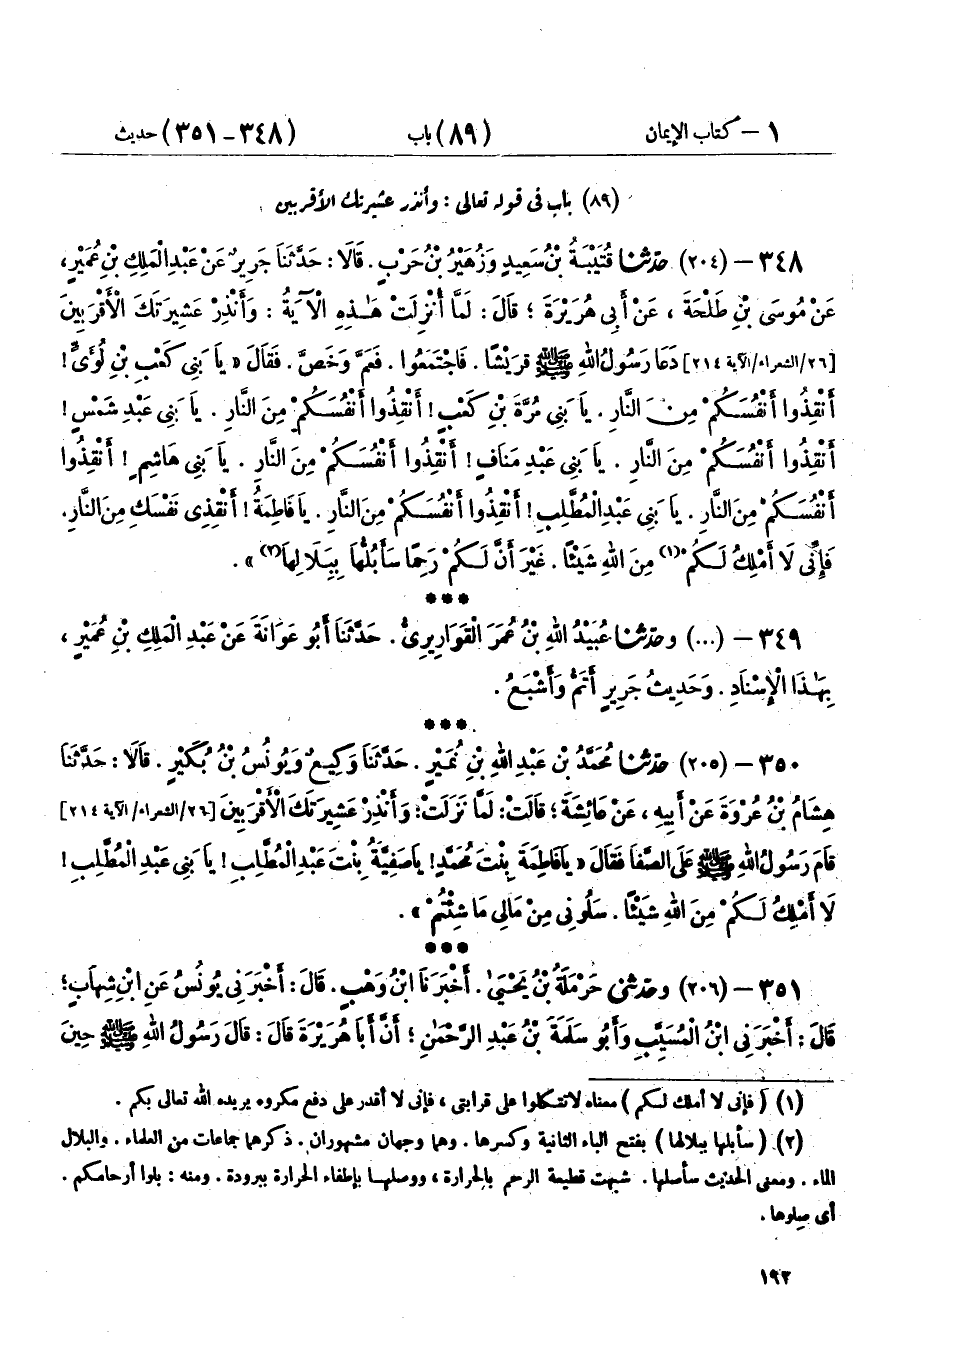 ١ – كتاب الإيمان (٨٩) باب (٣٤٨ – ٣٥١) حديث
(٨٩) باب فى قوله تعالى : وأنذر عشيرتك الأقربين
٣٤٨ – (٢٠٤) حدثنا قُتَيْبَةُ بْنُ سَعِيدٍ وَزُهَيْرُ بْنُ حَرْبٍ . قَالَا : حَدَّثَنَا جَرِيرٌ عَنْ عَبْدِ الْمَلِكِ بْنِ عُمَيْرٍ ،
عَنْ مُوسَى بْنِ طَلْحَةَ ، عَنْ أَبِى هُرَيْرَةَ ؛ قَالَ : لَمَّا أُنْزِلَتْ هَٰذِهِ الْآيَةُ : وَأَنْذِرْ عَشِيرَتَكَ الْأَقْرَبِينَ
[٢٦/الشعراء/الآية ٢١٤] دَعَا رَسُولُ اللهِ ﷺ قُرَيْشًا . فَاجْتَمَعُوا . فَعَمَّ وَخَصَّ . فَقَالَ « يَا بَنِى كَعْبِ بْنِ لُؤَىٍّ !
أَنْقِذُوا أَنْفُسَكُمْ مِنَ النَّارِ . يَا بَنِى مُرَّةَ بْنِ كَعْبٍ ! أَنْقِذُوا أَنْفُسَكُمْ مِنَ النَّارِ . يَا بَنِى عَبْدِ شَمْسٍ !
أَنْقِذُوا أَنْفُسَكُمْ مِنَ النَّارِ . يَا بَنِى عَبْدِ مَنَافٍ ! أَنْقِذُوا أَنْفُسَكُمْ مِنَ النَّارِ . يَا بَنِى هَاشِمٍ ! أَنْقِذُوا
أَنْفُسَكُمْ مِنَ النَّارِ . يَا بَنِى عَبْدِ الْمُطَّلِبِ ! أَنْقِذُوا أَنْفُسَكُمْ مِنَ النَّارِ . يَا فَاطِمَةُ ! أَنْقِذِى نَفْسَكِ مِنَ النَّارِ .
فَإِنِّى لَا أَمْلِكُ لَكُمْ (١) مِنَ اللهِ شَيْئًا . غَيْرَ أَنَّ لَكُمْ رَحِمًا سَأَبُلُّهَا بِبَلَالِهَا (٢) » .
***
٣٤٩ – (...) وحدثنا عُبَيْدُ اللهِ بْنُ عُمَرَ الْقَوَارِيرِىُّ . حَدَّثَنَا أَبُو عَوَانَةَ عَنْ عَبْدِ الْمَلِكِ بْنِ عُمَيْرٍ ،
بِهَٰذَا الْإِسْنَادِ . وَحَدِيثُ جَرِيرٍ أَتَمُّ وَأَشْبَعُ .
***
٣٥٠ – (٢٠٥) حدثنا مُحَمَّدُ بْنُ عَبْدِ اللهِ بْنِ نُمَيْرٍ . حَدَّثَنَا وَكِيعٌ وَيُونُسُ بْنُ بُكَيْرٍ . قَالَا : حَدَّثَنَا
هِشَامُ بْنُ عُرْوَةَ عَنْ أَبِيهِ ، عَنْ عَائِشَةَ ؛ قَالَتْ : لَمَّا نَزَلَتْ : وَأَنْذِرْ عَشِيرَتَكَ الْأَقْرَبِينَ [٢٦/الشعراء/الآية ٢١٤]
قَامَ رَسُولُ اللهِ ﷺ عَلَى الصَّفَا فَقَالَ « يَا فَاطِمَةُ بِنْتَ مُحَمَّدٍ ! يَا صَفِيَّةُ بِنْتَ عَبْدِ الْمُطَّلِبِ ! يَا بَنِى عَبْدِ الْمُطَّلِبِ !
لَا أَمْلِكُ لَكُمْ مِنَ اللهِ شَيْئًا . سَلُونِى مِنْ مَالِى مَا شِئْتُمْ » .
***
٣٥١ – (٢٠٦) وحدثنى حَرْمَلَةُ بْنُ يَحْيَىٰ . أَخْبَرَنَا ابْنُ وَهْبٍ . قَالَ : أَخْبَرَنِى يُونُسُ عَنِ ابْنِ شِهَابٍ ؛
قَالَ : أَخْبَرَنِى ابْنُ الْمُسَيَّبِ وَأَبُو سَلَمَةَ بْنُ عَبْدِ الرَّحْمَٰنِ ؛ أَنَّ أَبَا هُرَيْرَةَ قَالَ : قَالَ رَسُولُ اللهِ ﷺ حِينَ
(١) ( فإنى لا أملك لكم ) معناه لا تتكلوا على قرابتى ، فإنى لا أقدر على دفع مكروه يريده الله تعالى بكم .
(٢) ( سأبلها ببلالها ) بفتح الباء الثانية وكسرها . وهما وجهان مشهوران . ذكرهما جماعات من العلماء . والبلال
الماء . ومعنى الحديث سأصلها . شبهت قطيعة الرحم بالحرارة ، ووصلها بإطفاء الحرارة ببرودة . ومنه : بلوا أرحامكم .
أى صلوها .
١٩٢